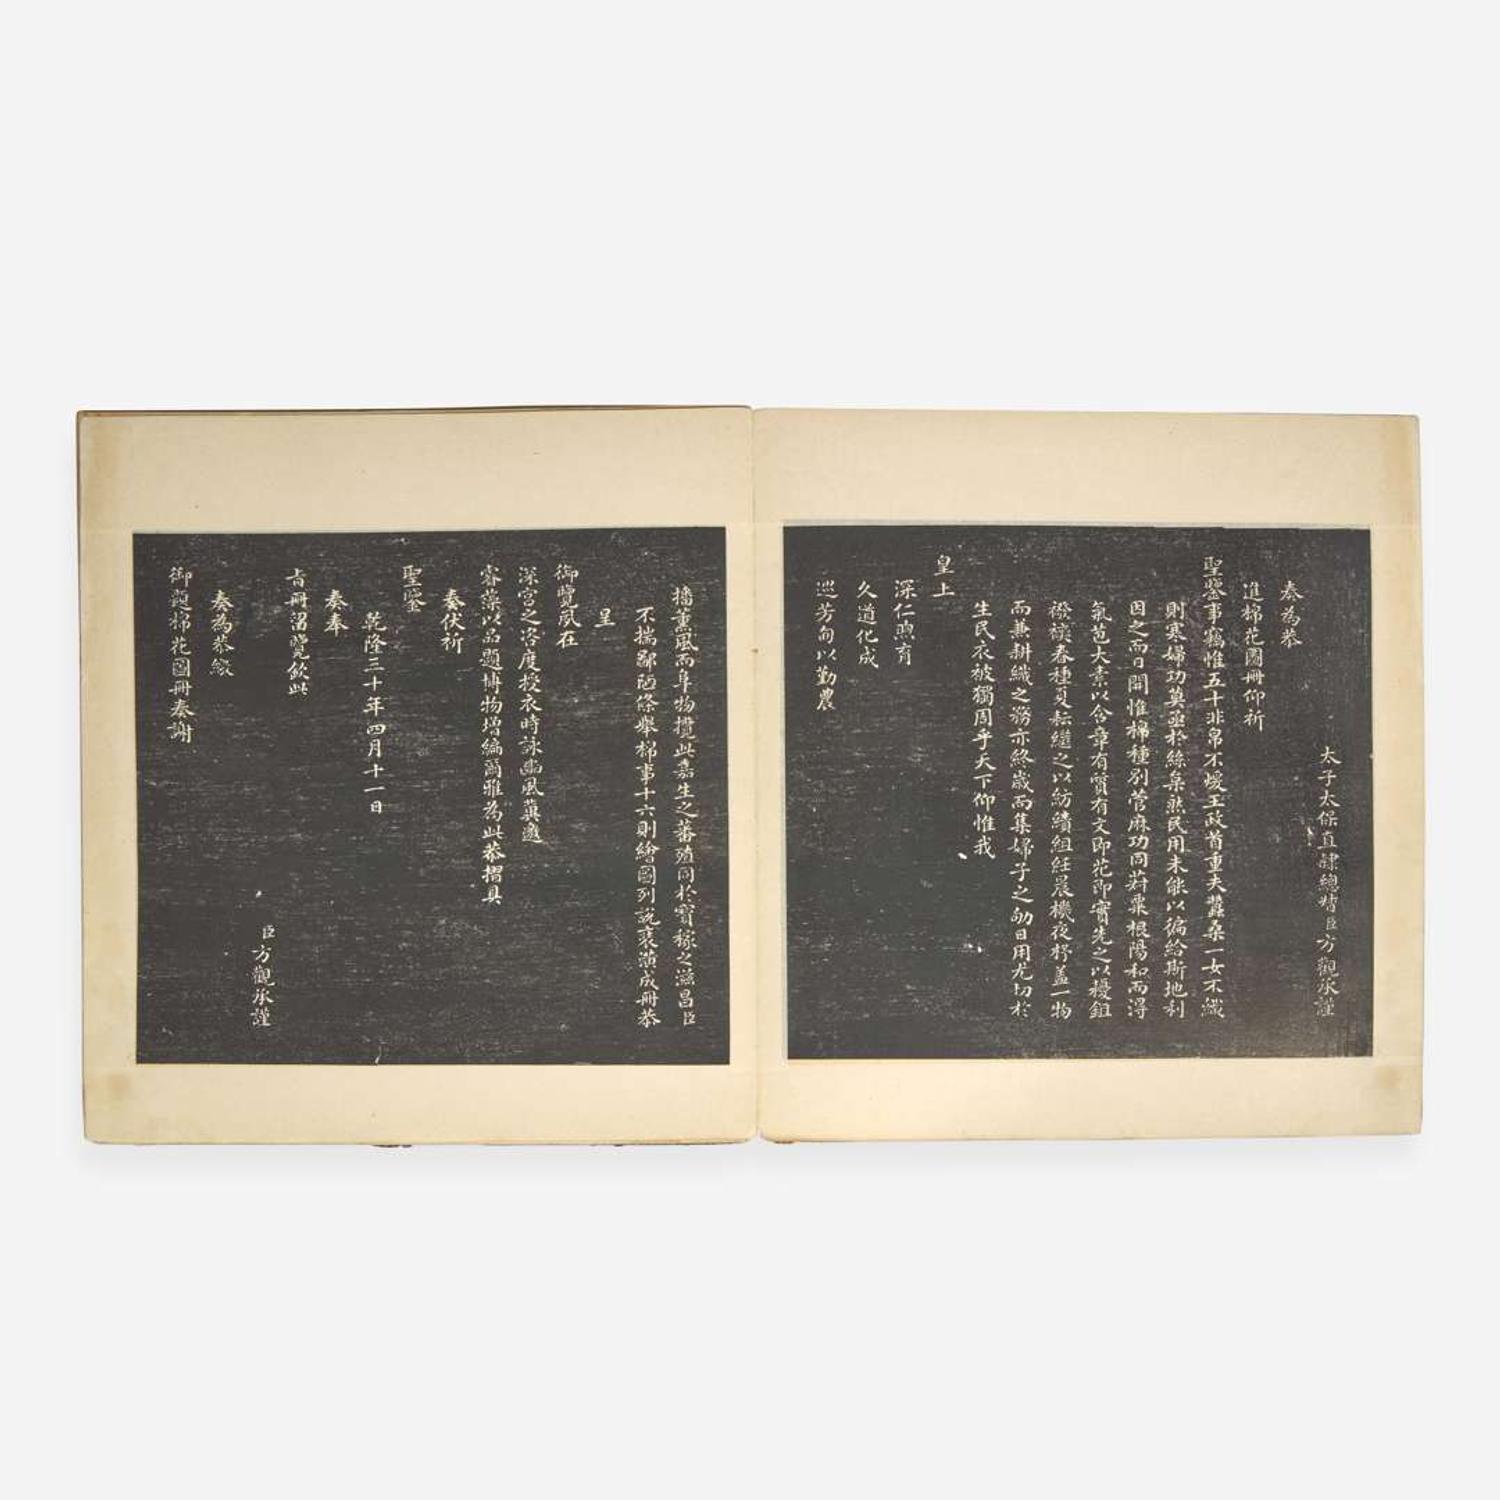 太子太保直隸總督臣方觀承謹
奏為恭
進棉花圖冊仰祈
聖鑒事竊惟五十非帛不煖王政首重夫蠶桑一女不織
則寒婦功莫亟於絲枲然民用未能以徧給斯地利
因之而日開惟棉種別菅麻功同菽粟根陽和而得
氣苞大素以含章有質有文即花即實先之以耰鉏
襏襫春種夏耘繼之以紡績組紝晨機夜杼蓋一物
而兼耕織之務亦終歲而集婦子之劬日用尤切於
生民衣被獨周乎天下仰惟我
皇上
深仁煦育
久道化成
巡芳甸以勤農
播薰風而阜物攬此嘉生之蕃殖同於寶稼之滋昌臣
不揣鄙陋條舉棉事十六則繪圖列說裒演成冊恭
呈
御覽夙在
深宮之咨度授衣時詠豳風冀邀
睿藻以品題博物增編爾雅為此恭摺具
奏伏祈
聖鑒
乾隆三十年四月十一日
奏奉
旨冊留覽欽此
臣方觀承謹
奏為恭繳
御題棉花圖冊奏謝